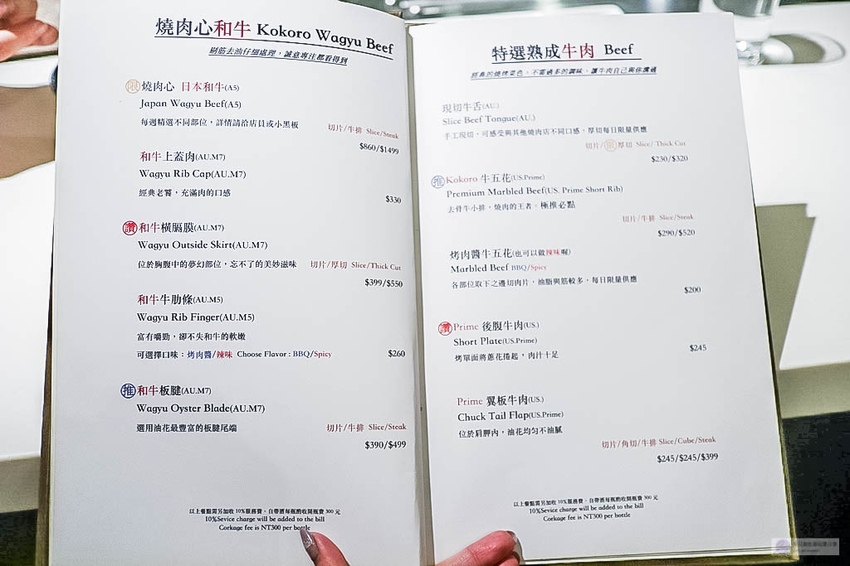 燒肉心和牛 Kokoro Wagyu Beef
剔筋去油仔細處理,誠意專注都看得到
限 燒肉心 日本和牛(A5)
Japan Wagyu Beef(A5)
每週精選不同部位,詳情請洽店員或小黑板
切片/牛排 Slice/Steak
$860/$1499
和牛上蓋肉(AU.M7)
Wagyu Rib Cap(AU.M7)
經典老饕,充滿肉的口感
$330
讚 和牛橫膈膜(AU.M7)
Wagyu Outside Skirt(AU.M7)
位於胸腹中的夢幻部位,忘不了的美妙滋味 切片/厚切 Slice/Thick Cut
$399/$550
和牛牛肋條(AU.M5)
Wagyu Rib Finger(AU.M5)
富有嚼勁,卻不失和牛的軟嫩
可選擇口味:烤肉醬/辣味 Choose Flavor : BBQ/Spicy $260
推 和牛板腱(AU.M7)
Wagyu Oyster Blade(AU.M7)
選用油花最豐富的板腱尾端 切片/牛排 Slice/Steak
$390/$499
以上餐點需另加收 10%服務費。自帶酒每瓶酌收開瓶費 300 元
10%Sevice charge will be added to the bill
Corkage fee is NT300 per bottle
特選熟成牛肉 Beef
經典的燒烤菜色,不需過多的調味,讓牛肉自己與你溝通
現切牛舌(AU.)
Slice Beef Tongue(AU.)
手工現切,可感受與其他燒肉店不同口感,厚切每日限量供應
切片/限厚切 Slice/ Thick Cut
$230/$320
推 Kokoro 牛五花(US.Prime)
Premium Marbled Beef(US. Prime Short Rib)
去骨牛小排,燒肉的王者。極推必點
切片/牛排 Slice/Steak
$290/$520
烤肉醬牛五花(也可以做辣味喔)
Marbled Beef BBQ/Spicy
各部位取下之邊切肉片,油脂與筋較多,每日限量供應
$200
讚 Prime 後腹牛肉(US.)
Short Plate(US.Prime)
烤單面將蔥花捲起,肉汁十足
$245
Prime 翼板牛肉(US.)
Chuck Tail Flap(US.Prime)
位於肩胛肉,油花均勻不油膩
切片/角切/牛排 Slice/Cube/Steak
$245/$245/$399
以上餐點需另加收 10%服務費。自帶酒每瓶酌收開瓶費 300 元
10%Sevice charge will be added to the bill
Corkage fee is NT300 per bottle